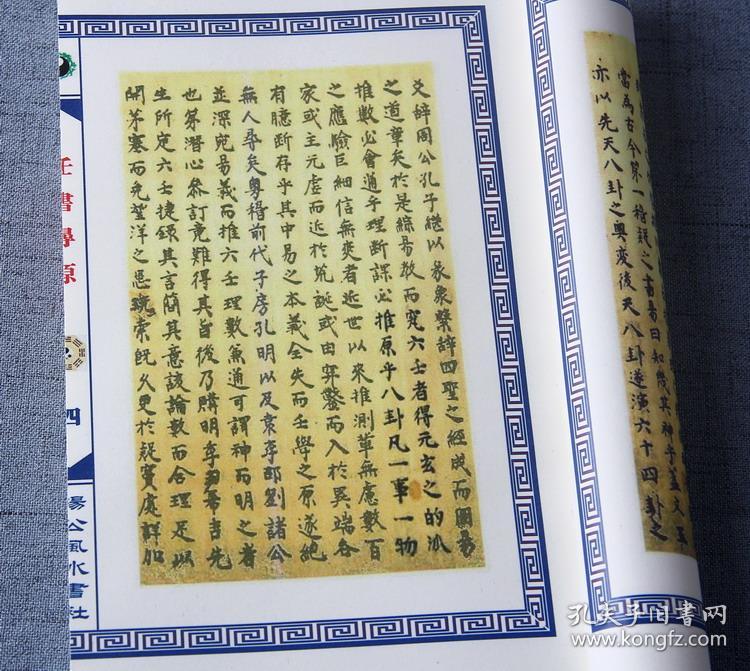 當為古今第一稽疑之書易曰知幾其神乎蓋文王
亦以先天八卦之奧变後天八卦遂演六十四卦之
爻辞周公孔子継以彖象繫辞四聖之經成而周易
之道章矣於是綜易数而究六壬者得元玄之的派
推数必會通乎理断課必推原乎八卦凡一事一物
之應險巨細信無爽者近世以來推測軰無慮數百
家或主元虛而近於荒誕或由穿鑿而入於異端各
有臆断存乎其中易之本義全失而壬學之原遂絶
無人尋矣粤稽前代子房孔明以及袁李邵劉諸公
並深究易義而推六壬理數兼通可謂神而明之者
也第潜心參訂竟難得其旨後乃購明季希吉先
生所定六壬捷錄其言簡其意該論數而合理足以
開茅塞而免望洋之思玩索既久更於疑竇處詳加
壬書尋原
四
楊公風水書社
孔夫子旧書网
www.kongfz.com